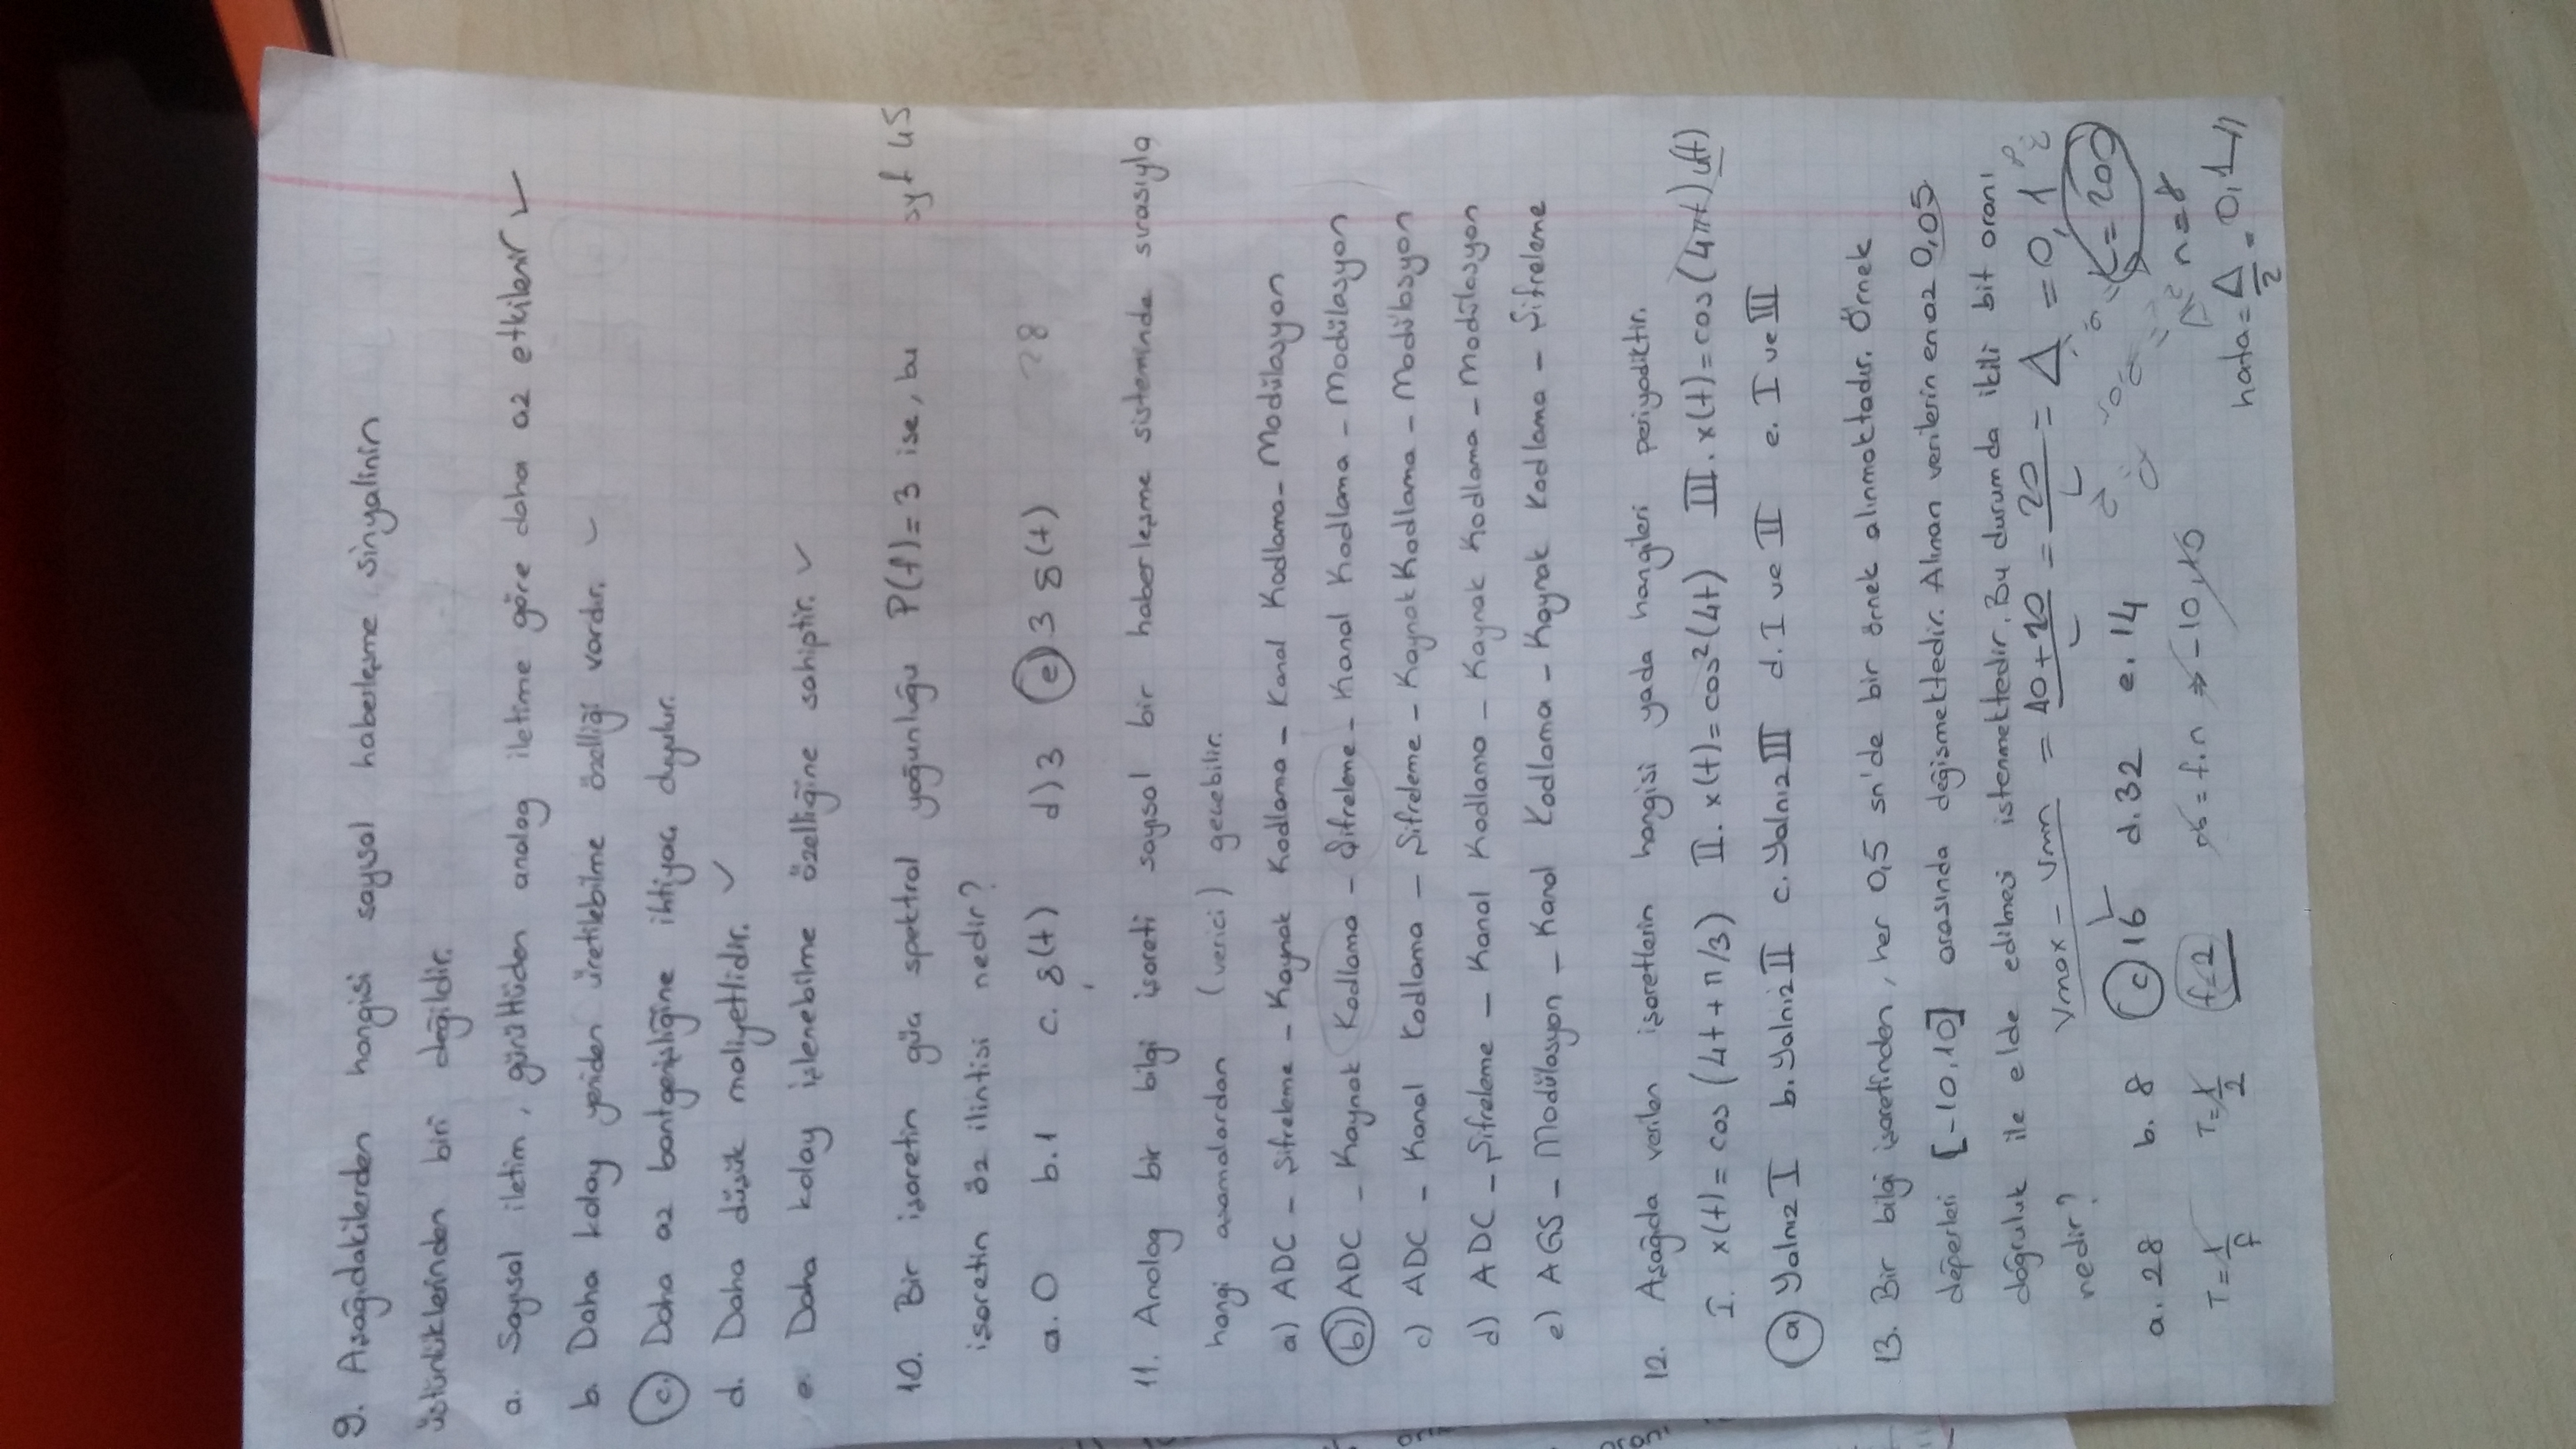 9. Aşağıdakilerden hangisi sayısal haberleşme sinyalinin
üstünlüklerinden biri değildir.
a. Sayısal iletim, gürültüden analog iletime göre daha az etkilenir ✓
b. Daha kolay yeniden üretilebilme özelliği vardır. ✓
c. Daha az bantgenişliğine ihtiyaç duyulur.
d. Daha düşük maliyetlidir. ✓
e. Daha kolay işlenebilme özelliğine sahiptir. ✓
10. Bir işaretin güç spektral yoğunluğu P(f)=3 ise, bu syf 45
işaretin öz ilintisi nedir?
a. 0 b. 1 c. δ(t) d) 3 e) 3 δ(t) 28
11. Anolog bir bilgi işareti sayısal bir haberleşme sisteminde sırasıyla
hangi asamalardan (verici) geçebilir.
a) ADC - Şifreleme - Kaynak Kodlama - Kanal Kodlama - Modülasyon
b) ADC - Kaynak Kodlama - Şifreleme - Kanal Kodlama - Modülasyon
c) ADC - Kanal Kodlama - Şifreleme - Kaynak Kodlama - Modülasyon
d) ADC - Şifreleme - Kanal Kodlama - Kaynak Kodlama - Modülasyon
e) AGS - Modülasyon - Kanal Kodlama - Kaynak Kodlama - Şifreleme
12. Aşağıda verilen işaretlerin hangisi yada hangileri periyodiktir.
I. x(t) = cos (4t + π/3) II. x(t) = cos²(4t) III. x(t) = cos(4πt) u(t)
a) Yalnız I b. Yalnız II c. Yalnız III d. I ve II e. I ve III
13. Bir bilgi işaretinden, her 0,5 sn'de bir örnek alınmaktadır. Örnek
değerleri [-10,10] arasında değişmektedir. Alınan verilerin en az 0,05
doğruluk ile elde edilmesi istenmektedir. Bu durumda ikili bit oranı
nedir? Vmax - Vmin / L = 10+10 / L = 20 / L = Δ = 0,1
L = 200
a. 28 b. 8 c) 16 d. 32 e. 14
n=8
T = 1/f T = 1/2 f=2 = f.n ⇒ -10,10
hata = Δ/2 = 0,1